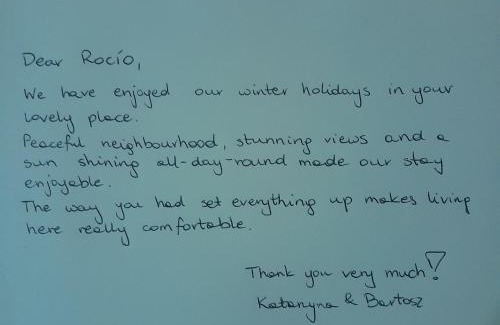 Dear Rocío,
We have enjoyed our winter holidays in your
lovely place.
Peaceful neighbourhood, stunning views and a
sun shining all-day-round made our stay
enjoyable.
The way you had set everything up makes living
here really comfortable.
Thank you very much!
Katarzyna & Bartosz